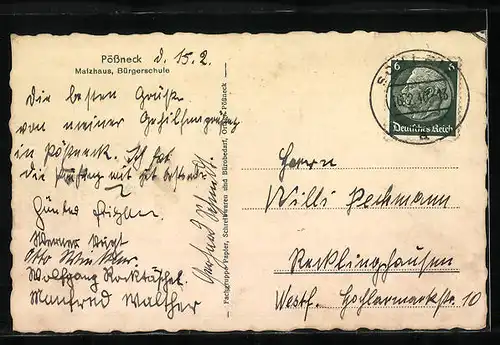 Pößneck d. 15.2.
Malzhaus, Bürgerschule
Die besten Grüße
von meiner Gehilfenprüfung
in Pößneck. Ich hab
die Prüfung mit gut bestanden
Günter
Werner Vogt
Otto Winkler
Wolfgang Rocktäschel
Manfred Walther
Fachgruppe Papier, Schreibwaren und Bürobedarf, Pößneck
6 6
Deutsches Reich
a
Herrn
Willi Pechmann
Recklinghausen
Westf. Hochlarmarkstr. 10